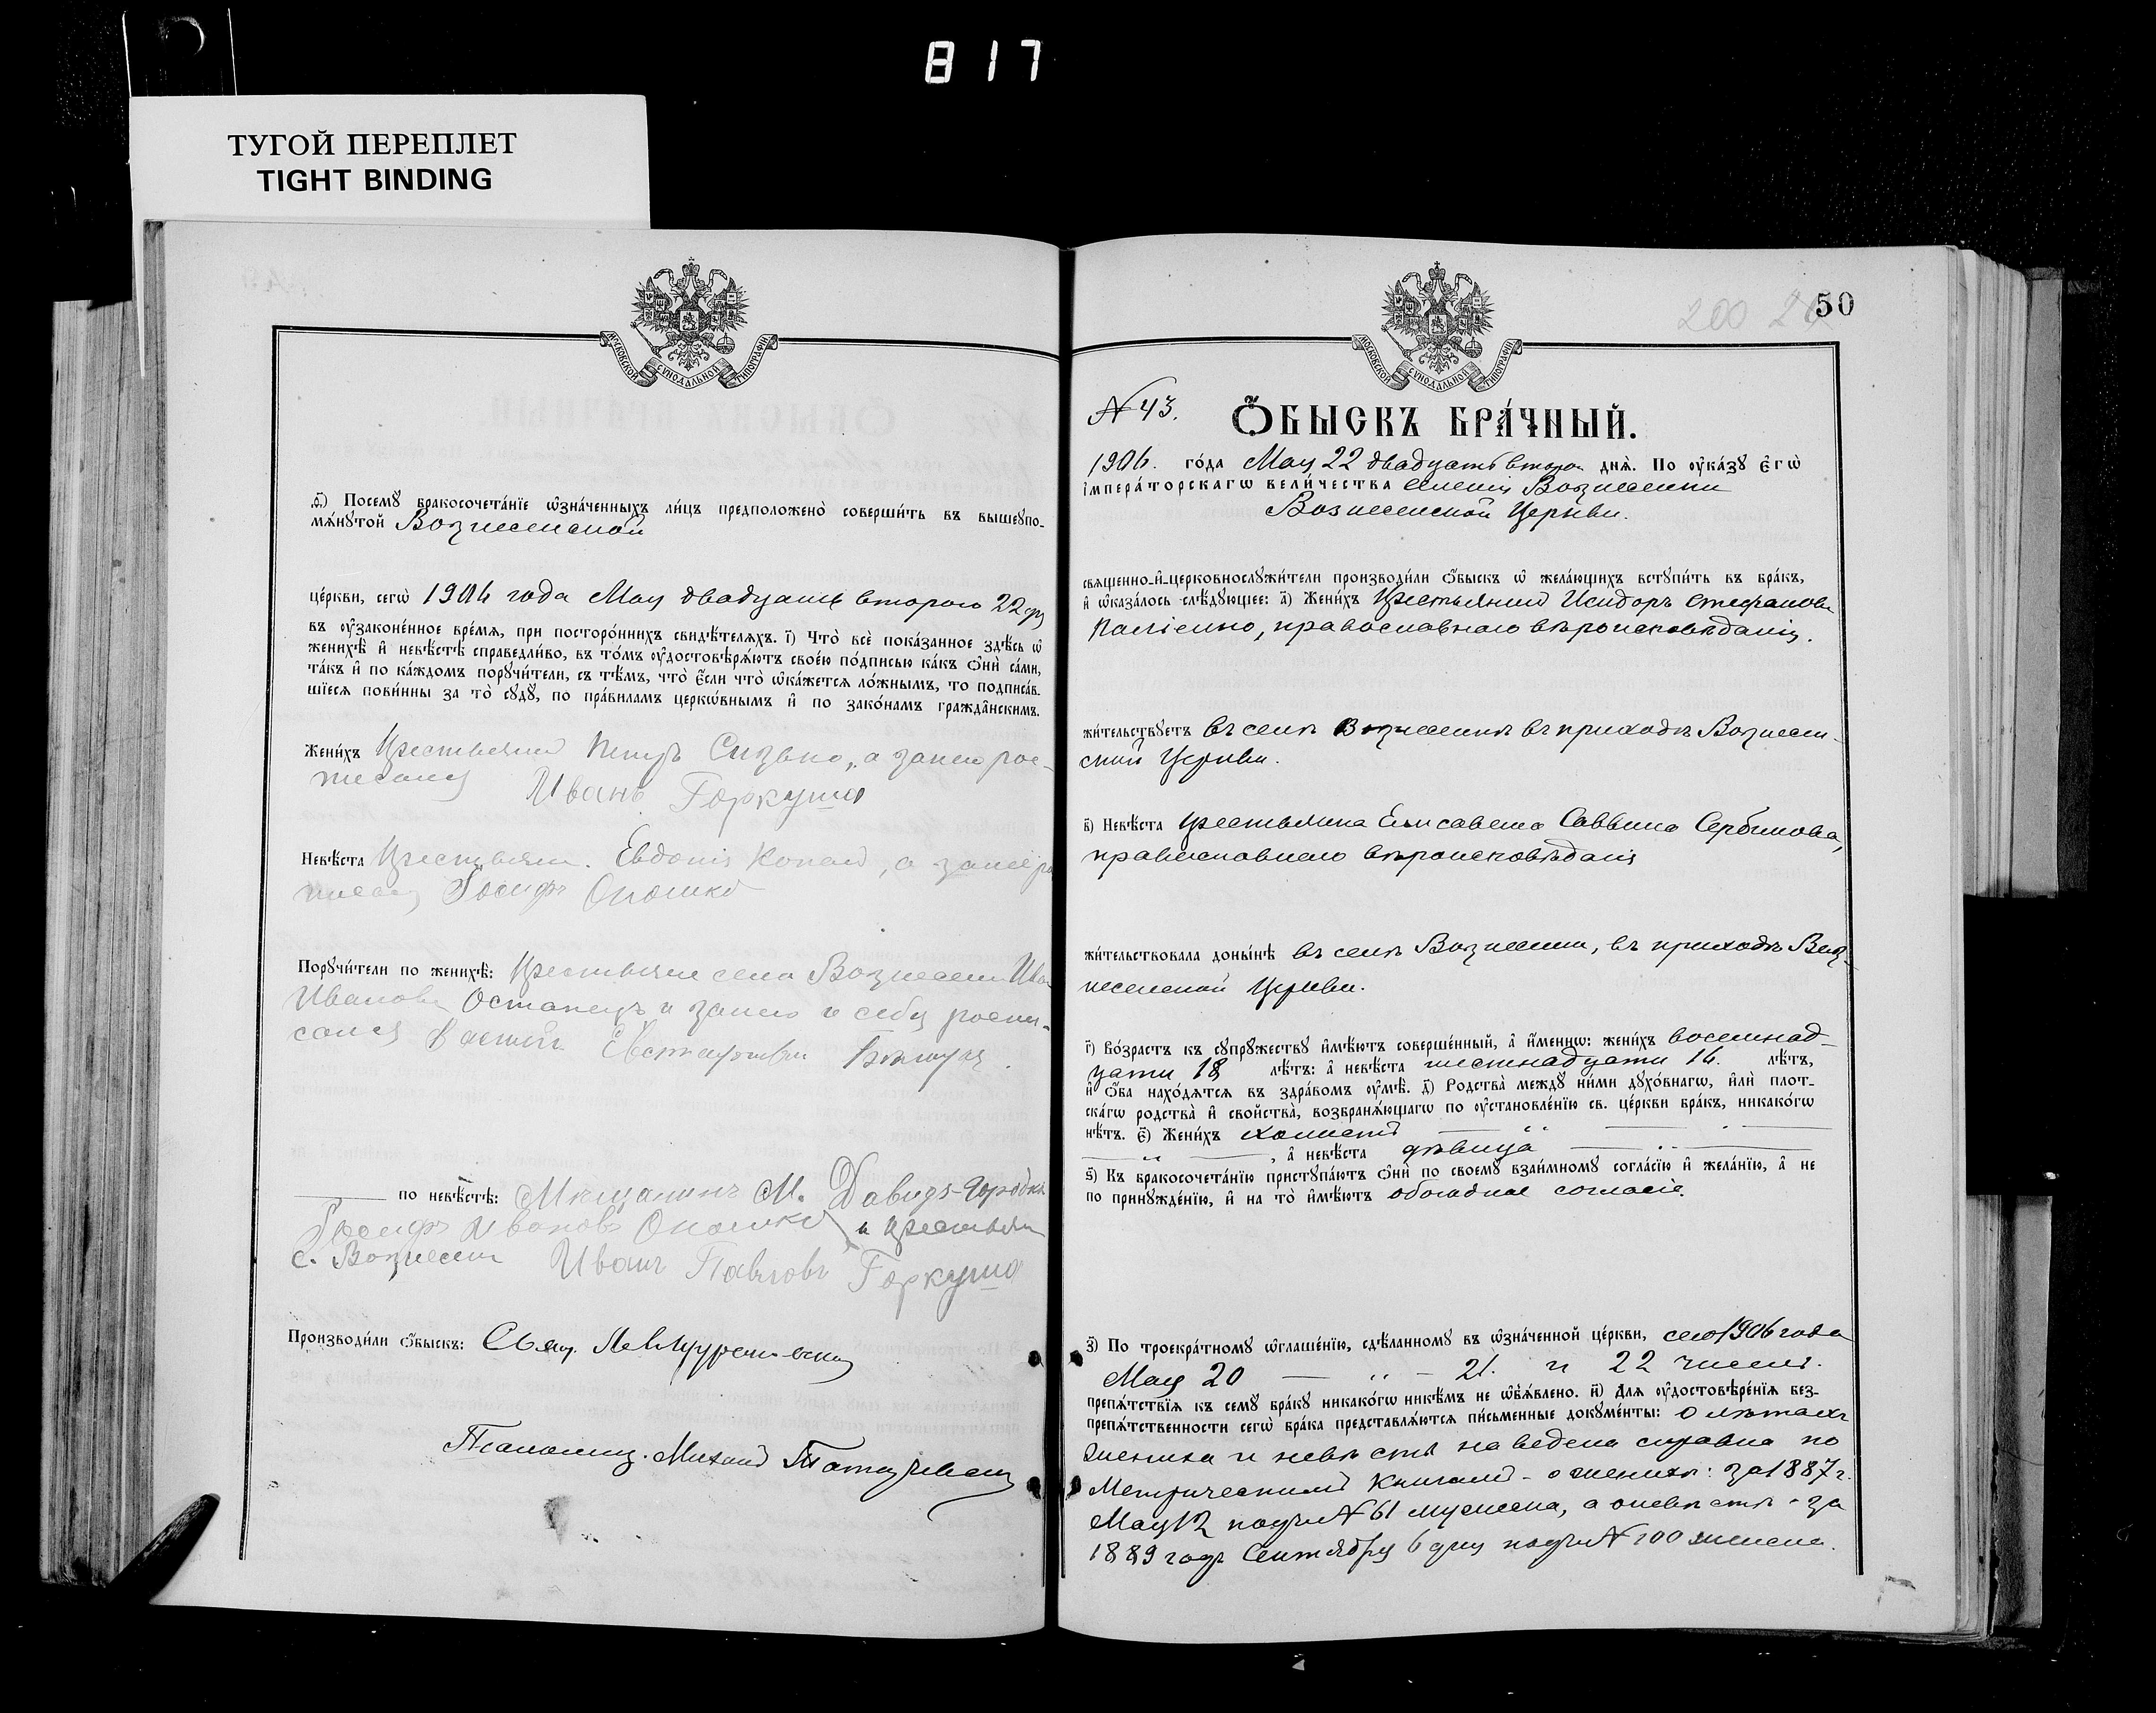 817
ТУГОЙ ПЕРЕПЛЕТ
TIGHT BINDING
МОСКОВСКОЙ СѴНОДАЛЬНОЙ ТИПОГРАФІИ
ѳ҃) Посемꙋ̀ бракосочета́нїе ѡ҆зна́ченныхъ ли́цъ предположено̀ соверши́ть въ вышеꙋпо-
мѧ́нꙋтой Вознесенской
це́ркви, сегѡ̀ 1906 года Мая двадцать второго 22 дня
въ ᲂу҆зако́ненное вре́мѧ, при посторо́ннихъ свидѣ́телѧхъ. і҃) Что̀ всѐ пока́занное здѣ́сь ѡ҆
женихѣ̀ и҆ невѣ́стѣ справедли́во, въ то́мъ ᲂу҆достовѣрѧ́ютъ свое́ю по́дписью ка́къ ѻ҆нѝ са́ми,
та́къ и҆ по ка́ждомъ порꙋчи́тели, съ тѣ́мъ, что̀ є҆́сли что̀ ѡ҆ка́жетсѧ ло́жнымъ, то подписа́в-
шїесѧ пови́нны за то̀ сꙋдꙋ̀, по пра́виламъ церкѡ́внымъ и҆ по зако́намъ гражда̑нскимъ.
Жени́хъ Крестьянин Петръ Сизько, а занего рос-
писался Иванъ Горкуша
Невѣ́ста Крестьян. Евдокія Копает, а занее ро
писался Іосифъ Опошко
Порꙋчи́тели по женихѣ̀: Крестьяне села Вознесенки Иван
Иванов Останецъ и занего и себя роспи-
сался
по невѣ́стѣ: Мѣщанинъ М. Давидъ-Городка
Іосифъ Ивановъ Опошко и крестьянин
с. Вознесенки Иванъ Павловъ Горкуша
Производи́ли ѻ҆́быскъ: Свящ.
Псаломщ. Михаил
200
50
МОСКОВСКОЙ СѴНОДАЛЬНОЙ ТИПОГРАФІИ
№ 43. Ѻ҆БЫСКЪ БРА́ЧНЫЙ.
1906. го́да Мая 22 двадцать второго днѧ̀. По ᲂу҆ка́зꙋ є҆гѡ̀
і҆мпера́торскагѡ вели́чества селенія Вознесенки
Вознесенской Церкви.
свѧщенно-и҆-церковнослꙋжи́тели производи́ли ѻ҆́быскъ ѡ҆ жела́ющихъ встꙋпи́ть въ бра́къ,
и҆ ѡ҆каза́лось слѣ́дꙋющее: а҃) Жени́хъ Крестьянин Исидоръ Стефанов
Паліенко, православнаго вѣроисповѣданія.
жи́тельствꙋетъ въ селѣ Вознесенкѣ въ приходѣ Вознесен-
ской Церкви.
в҃) Невѣ́ста крестьянка Елисавета Саввина Сербинова,
православнаго вѣроисповѣданія
жи́тельствовала доны́нѣ въ селѣ Вознесенки, въ приходѣ Воз-
несенской Церкви.
г҃) Во́зрастъ къ сꙋпрꙋ́жествꙋ и҆мѣ́ютъ соверше́нный, а҆ и҆́меннѡ: жени́хъ восемнад-
цати 18 лѣ́тъ: а҆ невѣ́ста шестнадцати 16. лѣ́тъ,
и҆ ѻ҆́ба нахо́дѧтсѧ въ здра́вомъ ᲂу҆мѣ̀. д҃) Родства̀ междꙋ̀ ни́ми дꙋхо́внагѡ, и҆лѝ плот-
ска́гѡ родства̀ и҆ сво́йства, возбранѧ́ющагѡ по ᲂу҆становле́нїю св. це́ркви бра́къ, никако́гѡ
нѣ́тъ. є҃) Жени́хъ холостъ
, а҆ невѣ́ста дѣвица
ѕ҃) Къ бракосочета́нїю пристꙋпа́ютъ ѻ҆нѝ по своемꙋ̀ взаи́мномꙋ согла́сїю и҆ жела́нїю, а҆ не
по принꙋжде́нїю, и҆ на то̀ и҆мѣ́ютъ обоюдное согласіе.
з҃) По троекра́тномꙋ ѡ҆глаше́нїю, сдѣ́ланномꙋ въ ѡ҆зна́ченной це́ркви, сего 1906 года
Мая 20 — „ — 21. и 22 чиселъ.
препѧ́тствїѧ къ семꙋ̀ бра́кꙋ никако́гѡ никѣ́мъ не ѡ҆бъѧ́влено. и҃) Для ᲂу҆достовѣре́нїѧ без-
препѧ́тственности сегѡ̀ бра́ка представлѧ́ютсѧ пи́сьменные докꙋме́нты: О лѣтахъ
жениха и невѣсты наведена справка по
Метрическимъ Книгамъ - о женихѣ: за 1887 г.
Мая 12 подъ № 61 мужеска, а о невѣстѣ - за
1889 годъ Сентября 6 дня подъ № 100 женска.